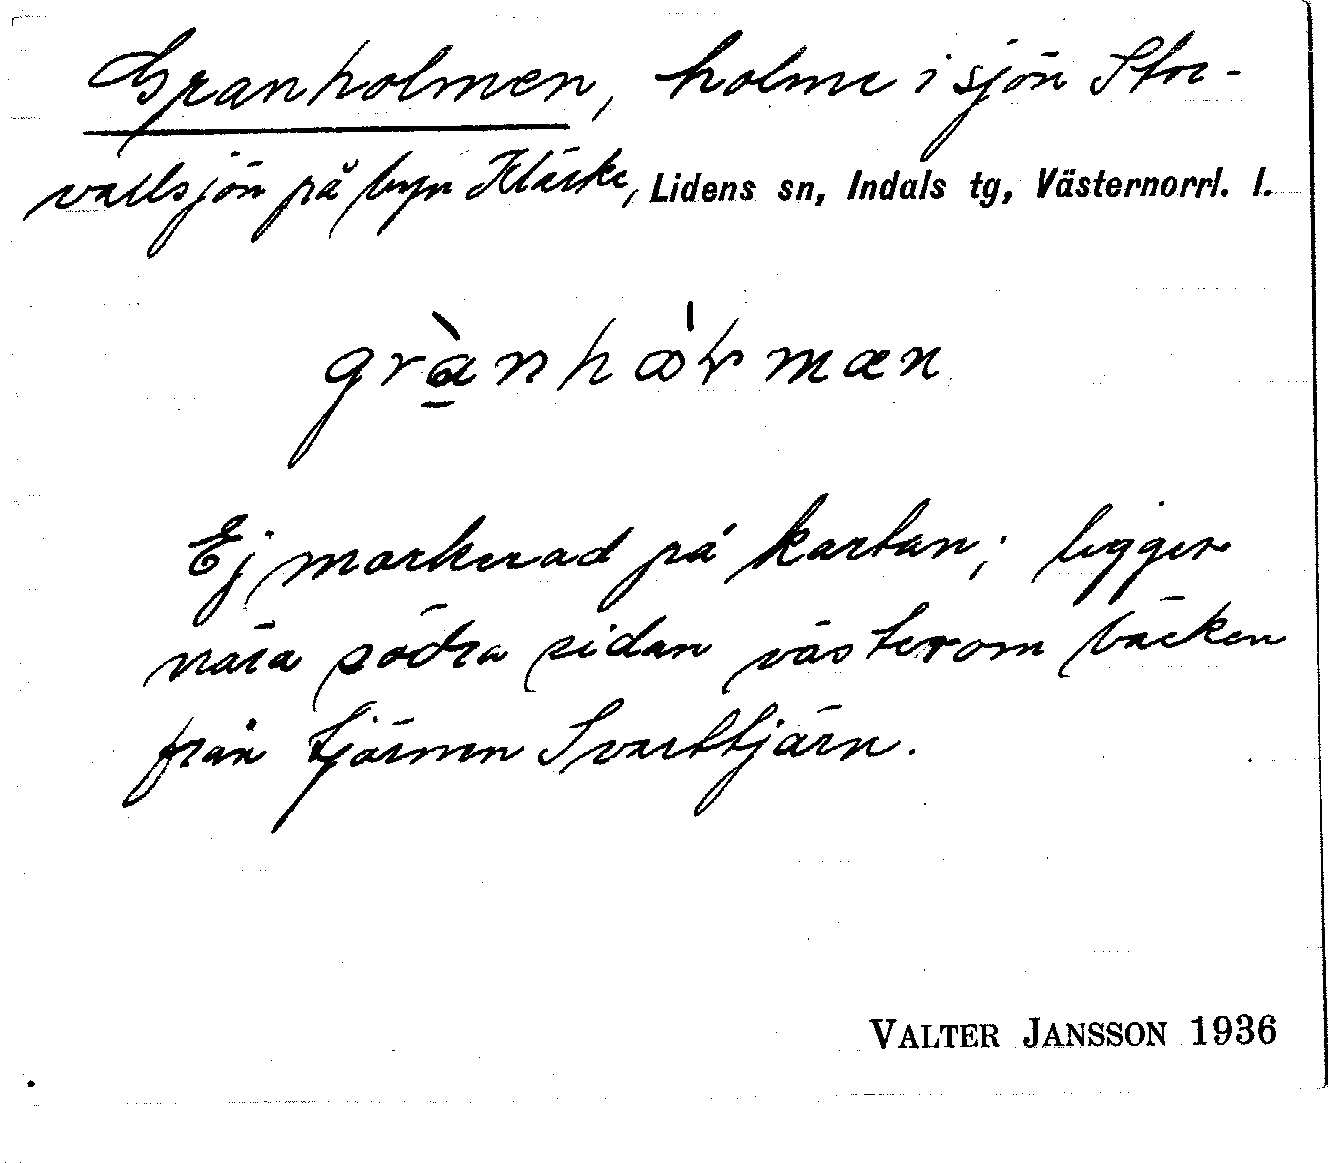 Granholmen, holme i sjön Stor-
vallsjön på byn Kläcke, Lidens sn, Indals tg, Västernorrl. l.
Ej markerad på kartan; ligger
nära södra sidan västerom bäcken
från tjärnen Svarttjärn.
VALTER JANSSON 1936